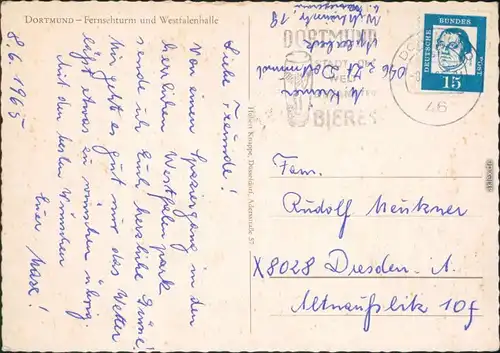 DORTMUND – Fernsehturm und Westfalenhalle
8.6.1965
Liebe Freunde!
Von einem Spaziergang in den
herrlichen Westfalenpark
sende ich Euch herzliche Grüsse!
Mir geht es gut nur das Wetter
läßt etwas zu wünschen übrig.
Mit den besten Wünschen
Euer Maxe!
Hilbert Knuppe, Düsseldorf, Adersstraße 57
M. Kremer
46 Dortmund
DORTMUND
STADT
BIERES
46
DEUTSCHE BUNDESPOST
15
Fam.
Rudolf Meukner
X8028 Dresden. A.
Altnaußlitz 10f